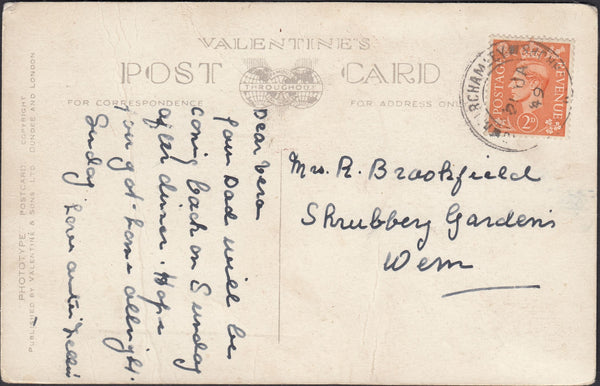 VALENTINE'S
POST CARD
THROUGHOUT
FOR CORRESPONDENCE
FOR ADDRESS ONLY
PHOTOTYPE POSTCARD COPYRIGHT
PUBLISHED BY VALENTINE & SONS LTD. DUNDEE AND LONDON
Dear Vera
your Dad will be
coming back on Sunday
after dinner. Hope
you got home allright.
Sunday. Love
Mrs. R. Brookfield
Shrubbery Gardens
Wem
POSTAGE REVENUE
2D
JA
49